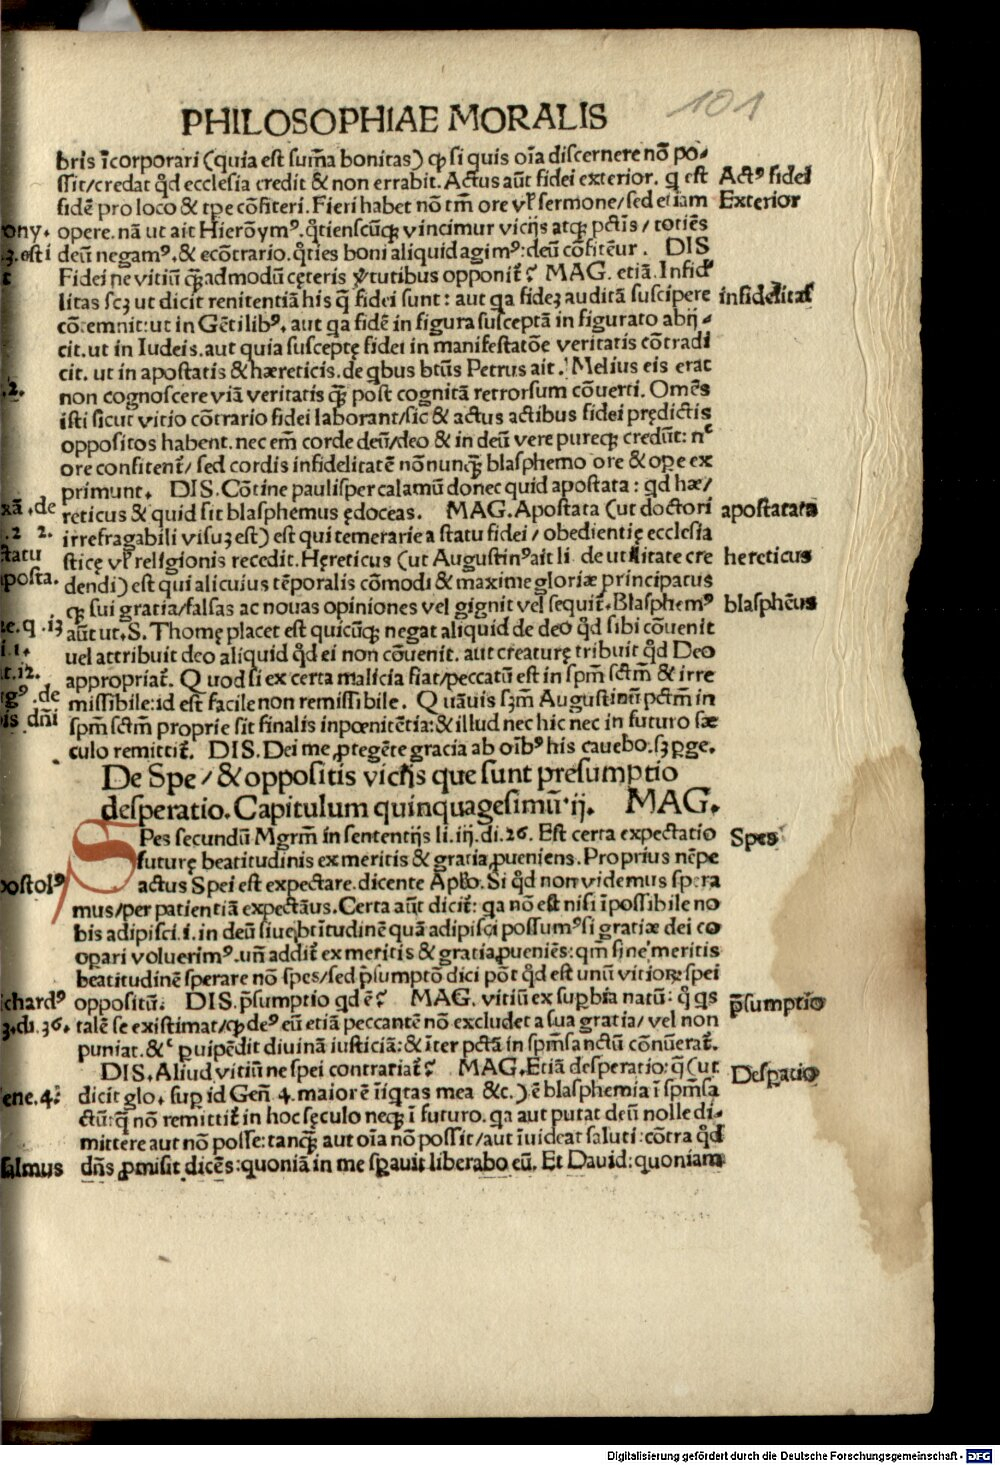 101
PHILOSOPHIAE MORALIS
bris ĩcorporari (quia est sum̃a bonitas) ꝙ si quis oĩa discernere nõ po-
ssit/credat qd̃ ecclesia credit & non errabit. Actus aũt fidei exterior. q est
Actꝰ fidei
Exterior
fidẽ pro loco & tpe cõfiteri. Fieri habet nõ tm̃ ore vł sermone/sed etiam
opere. nã ut ait Hierõymꝰ. q̃tienscũqꝫ vincimur vicijs atqꝫ pctĩs/totiẽs
ony.
deũ negamꝰ.& ecõtrario. q̃ties boni aliquid agimꝰ: deũ cõfitẽur. DIS
ꝫ. esti
Fidei ne vitiũ quẽadmodũ cęteris v̾tutibus opponit̃? MAG. etiã. Infide
litas scꝫ ut dicit renitentiã his q̃ fidei sunt: aut qa fideꝫ auditã suscipere
infidelitas
cõtemnit: ut in Gẽtilibꝰ. aut qa fidẽ in figura susceptã in figurato abij-
cit. ut in Iudeis. aut quia susceptę fidei in manifestatõe veritatis cõtradi
cit. ut in apostatis & hæreticis. de qbus btũs Petrus ait. Melius eis erat
.2.
non cognoscere viã veritatis q̃ꝫ post cognitã retrorsum cõuerti. Omẽs
isti sicut vitio cõtrario fidei laborant/sic & actus actibus fidei prędictis
oppositos habent. nec em̃ corde deũ/deo & in deũ vere pureqꝫ credũt: nᶜ
ore confitent̃/ sed cordis infidelitatẽ nõnunq̃ꝫ blasphemo ore & oꝑe ex
primunt. DIS. Cõtine paulisper calamũ donec quid apostata: qd hæ/
xã .de
reticus & quid sit blasphemus ędoceas. MAG. Apostata (ut doctori
apostatata
.2 2.
irrefragabili visuꝫ est) est qui temerarie a statu fidei / obedientię ecclesia
statu
sticę vł religionis recedit. Hęreticus (ut Augustinꝰ ait li. de utilitate cre
hereticus
posta.
dendi) est qui alicuius tẽporalis cõmodi & maxime gloriæ principatus
qꝫ sui gratia/falsas ac nouas opiniones vel gignit vel sequit̃. Blasphemꝰ
blasphẽus
e. q .13
aũt ut. S. Thomę placet est quicũqꝫ negat aliquid de deo qd̃ sibi cõuenit
i.1.
uel attribuit deo aliquid qd̃ ei non cõuenit. aut creaturę tribuit qd̃ Deo
t.12.
appropriat̃. Quod si ex certa malicia fiat/peccatũ est in spm̃ sctm̃ & irre
gꝰ .de
missibile: id est facile non remissibile. Quãuis sꝫm̃ Augustinũ pctm̃ in
is dñi
spm̃ sctm̃ proprie sit finalis inpœnitẽtia: & illud nec hic nec in futuro sæ
culo remittit̃. DIS. Dei me ꝓtegẽte gracia ab oĩbꝰ his cauebo. sꝫ ꝑge.
De Spe / & oppositis vicijs que sunt presumptio
desperatio. Capitulum quinquagesimũ.ij. MAG.
SPes secundũ Mgrm̃ in sententijs li. iij. di. 26. Est certa expectatio
Spes
futurę beatitudinis ex meritis & gratia ꝓueniens. Proprius nẽpe
actus Spei est expectare. dicente Apło. Si qd̃ non videmus spera
postolꝰ
mus/per patientiã expectãus. Certa aũt dicit̃: qa nõ est nisi ĩpossibile no
bis adipisci .i. in deũ siue btĩtudinẽ quã adipisci possumꝰ si gratiæ dei co
oꝑari voluerimꝰ. uñ addit̃ ex meritis & gratia ꝓueniẽs: qm̃ sine meritis
beatitudinẽ sperare nõ spes/sed p̃sumptõ dici põt qd̃ est unũ vitiorꝝ spei
oppositũ. DIS. p̃sumptio qd ẽ? MAG. vitiũ ex suꝑbia natũ: q̃ qs
chardꝰ
p̃sumptio
talẽ se existimat/ꝙ deꝰ eũ etiã peccantẽ nõ excludet a sua gratia/ vel non
ꝫ.di.36.
puniat. &ᶜ ꝓuipẽdit diuinã iusticiã: & ĩter pctã in spm̃ sanctũ cõnũerat̃.
DIS. Aliud vitiũ ne spei contrariat̃? MAG. Etiã desperatio: q̃ (ut
Desꝑatio
dicit glo. suꝑ id Geñ 4. maior ẽ ĩiqtas mea &c.) ẽ blasphemia ĩ spm̃ sã
ene. 4.
ctũ: q̃ nõ remittit̃ in hoc sęculo neqꝫ ĩ futuro. qa aut putat deũ nolle di-
mittere aut nõ posse: tanq̃ꝫ aut oĩa nõ possit/aut ĩuideat saluti: cõtra qd̃
dñs ꝓmisit dicẽs: quoniã in me sꝑauit liberabo eũ. Et Dauid: quoniam
salmus
Digitalisierung gefördert durch die Deutsche Forschungsgemeinschaft - DFG